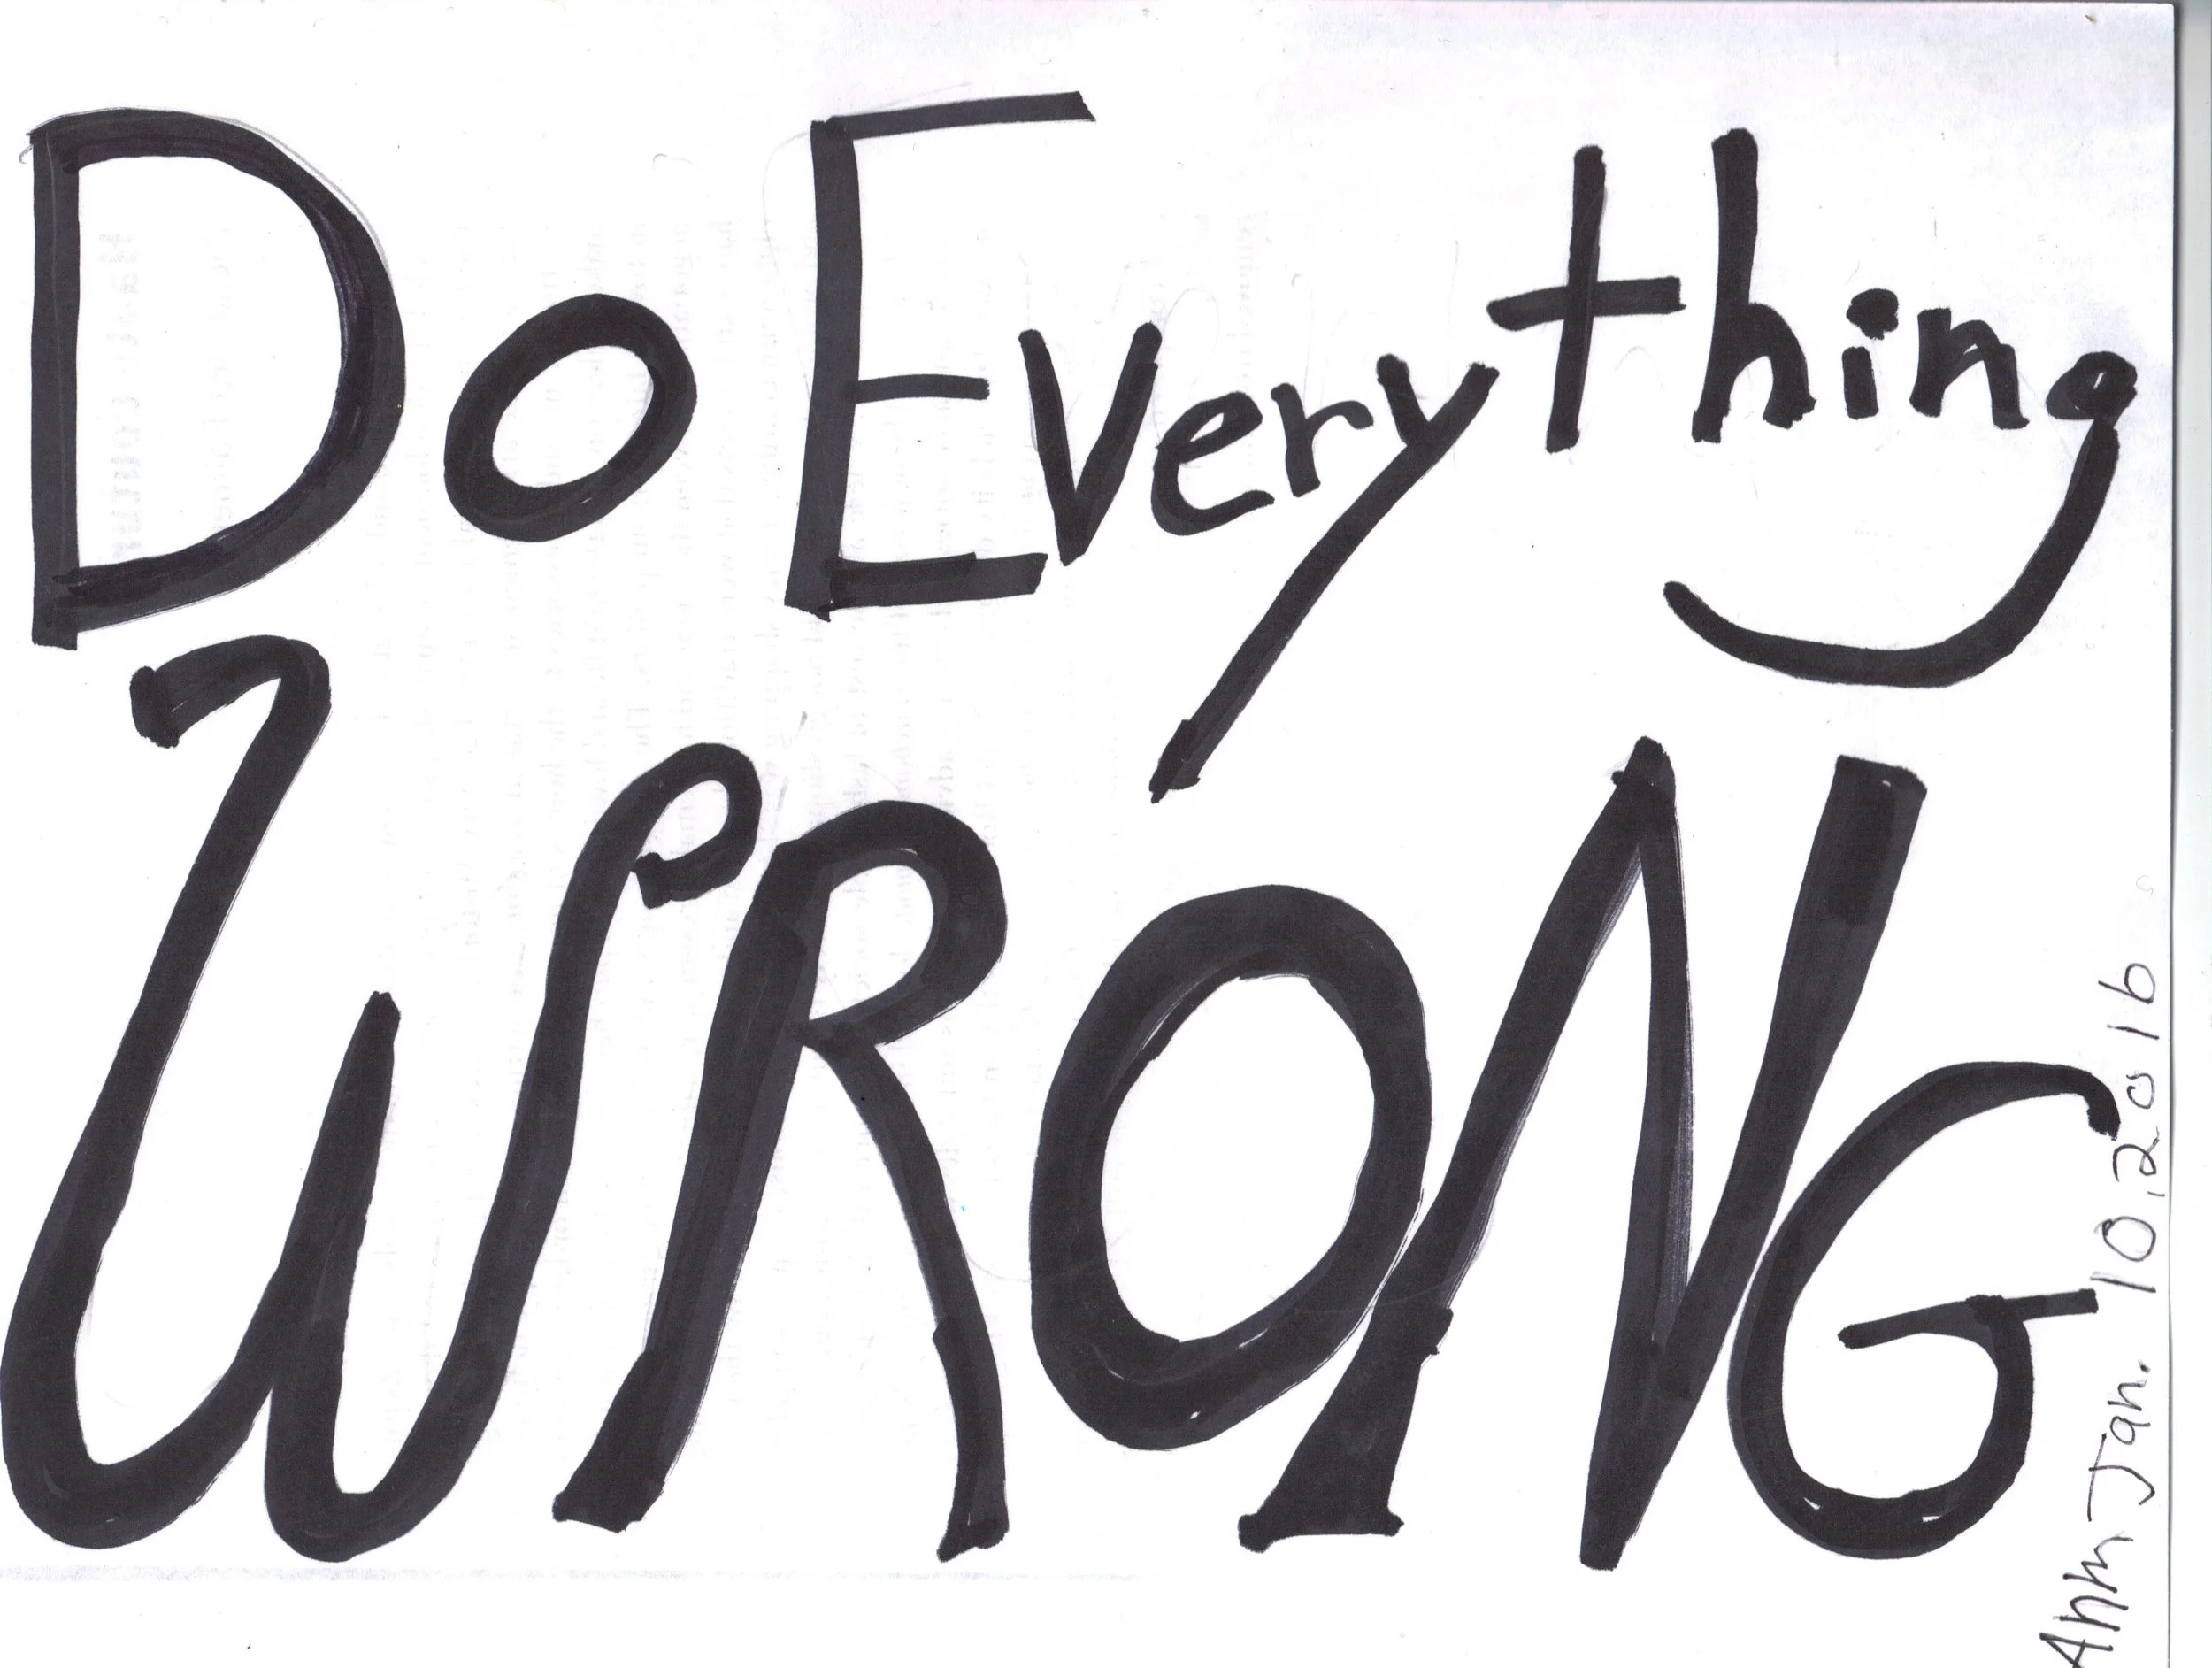 Do Everything
WRONG
Ahm Jan. 10, 2016